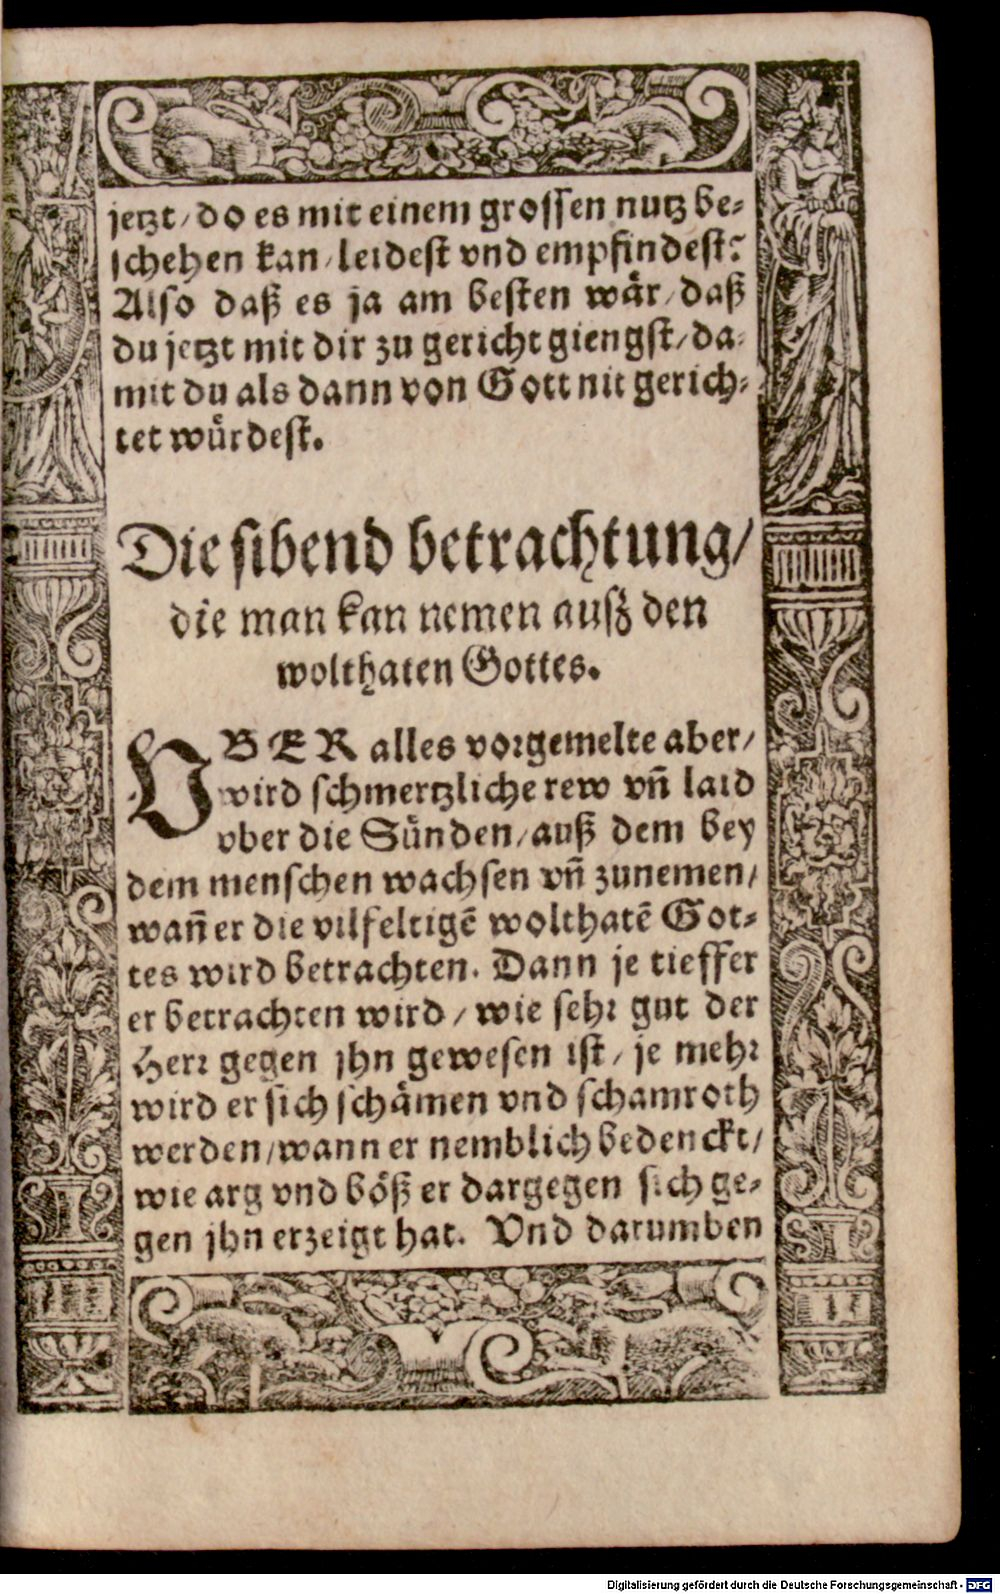 jetzt / do es mit einem grossen nutz be⸗
schehen kan / leidest vnd empfindest?
Also daß es ja am besten wär / daß
du jetzt mit dir zu gericht giengst / da⸗
mit du als dann von Gott nit gerich⸗
tet würdest.
Die sibend betrachtung /
die man kan nemen ausz den
wolthaten Gottes.
VBER alles vorgemelte aber /
wird schmertzliche rew vñ laid
vber die Sünden / auß dem bey
dem menschen wachsen vñ zunemen /
wañ er die vilfeltigẽ wolthatẽ Got⸗
tes wird betrachten. Dann je tieffer
er betrachten wird / wie sehr gut der
Herr gegen jhn gewesen ist / je mehr
wird er sich schämen vnd schamroth
werden / wann er nemblich bedenckt /
wie arg vnd böß er dargegen sich ge⸗
gen jhn erzeigt hat. Vnd darumben
Digitalisierung gefördert durch die Deutsche Forschungsgemeinschaft - DFG